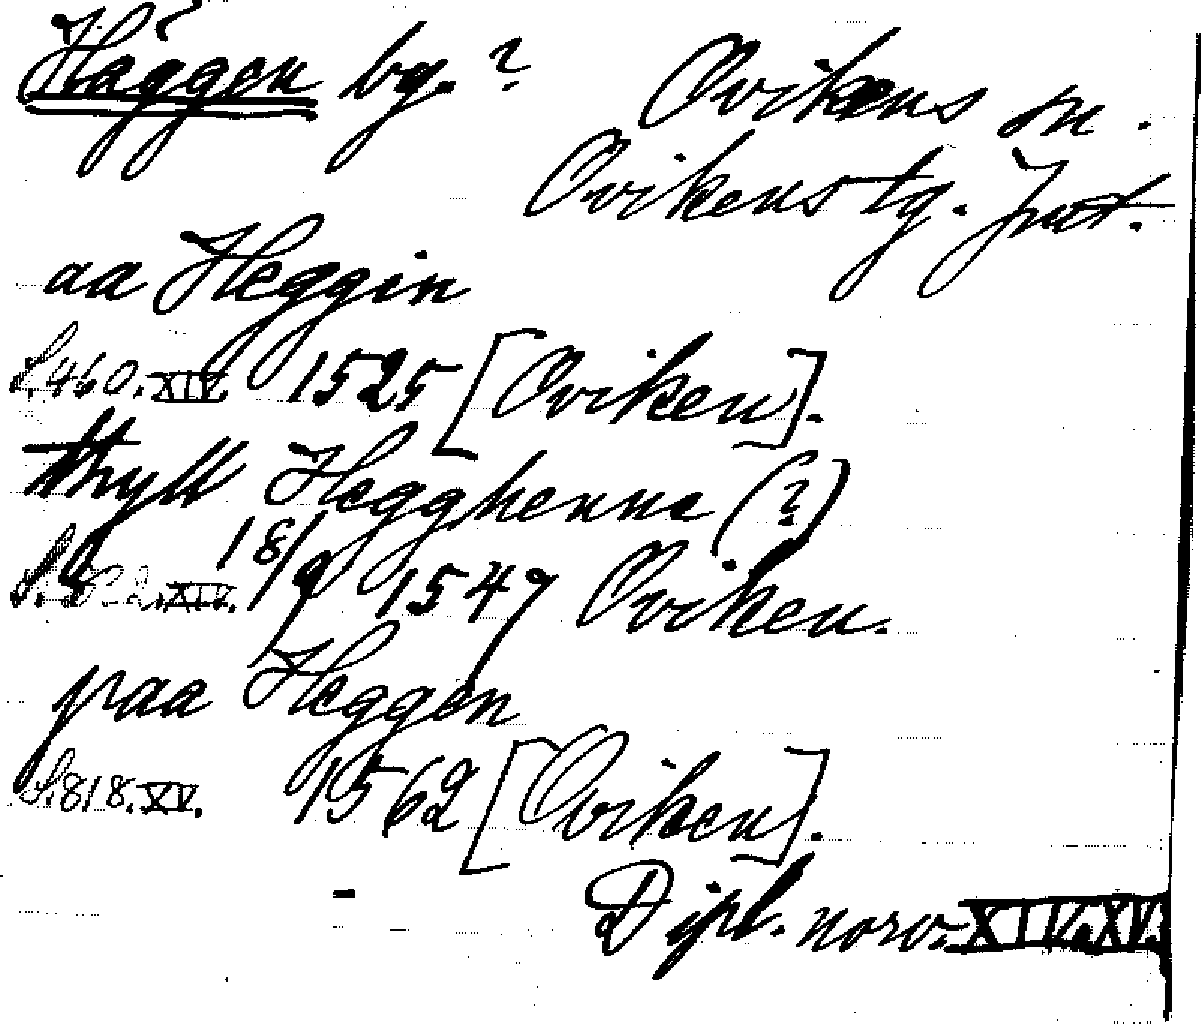 Häggen bg.? Ovikens sn.
Ovikens tg. Jmt.
aa Heggin
S. 460. XIV. 1525 [Oviken].
thyll Hegghenne (?)
XIV. 18/9 1547 Oviken.
paa Heggen
S. 818. XV. 1562 [Oviken].
Dipl. norv. XIV. XV.